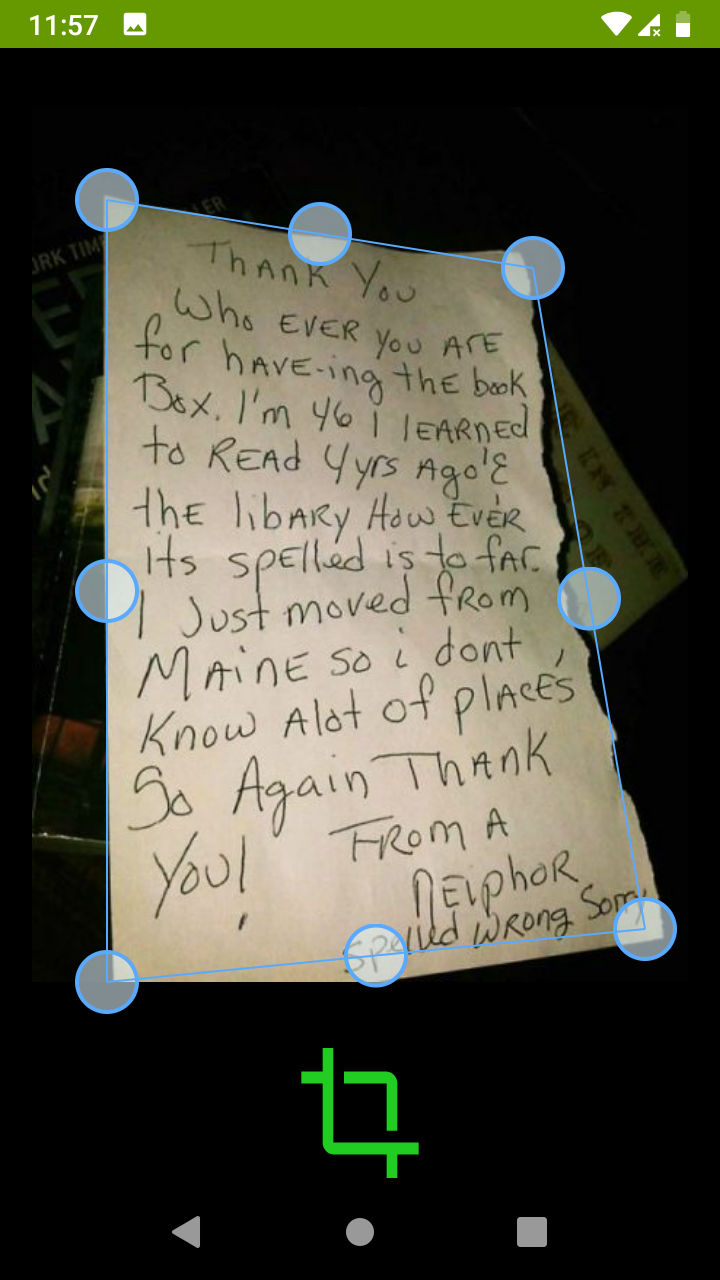 11:57
LLER
ORK TIME
Thank You
Who EVER you ArE
for hAVE-ing thE book
Box. I'm 46 I lEARNEd
to READ 4yrs Ago'&
thE libARy How EvEr
Its spElled is to fAr.
I Just moved fRom
MAiNE so i dont
Know Alot of plAcEs
So Again Thank
You! From A
NEiphoR
Spelled WRong Sorry
IN THE